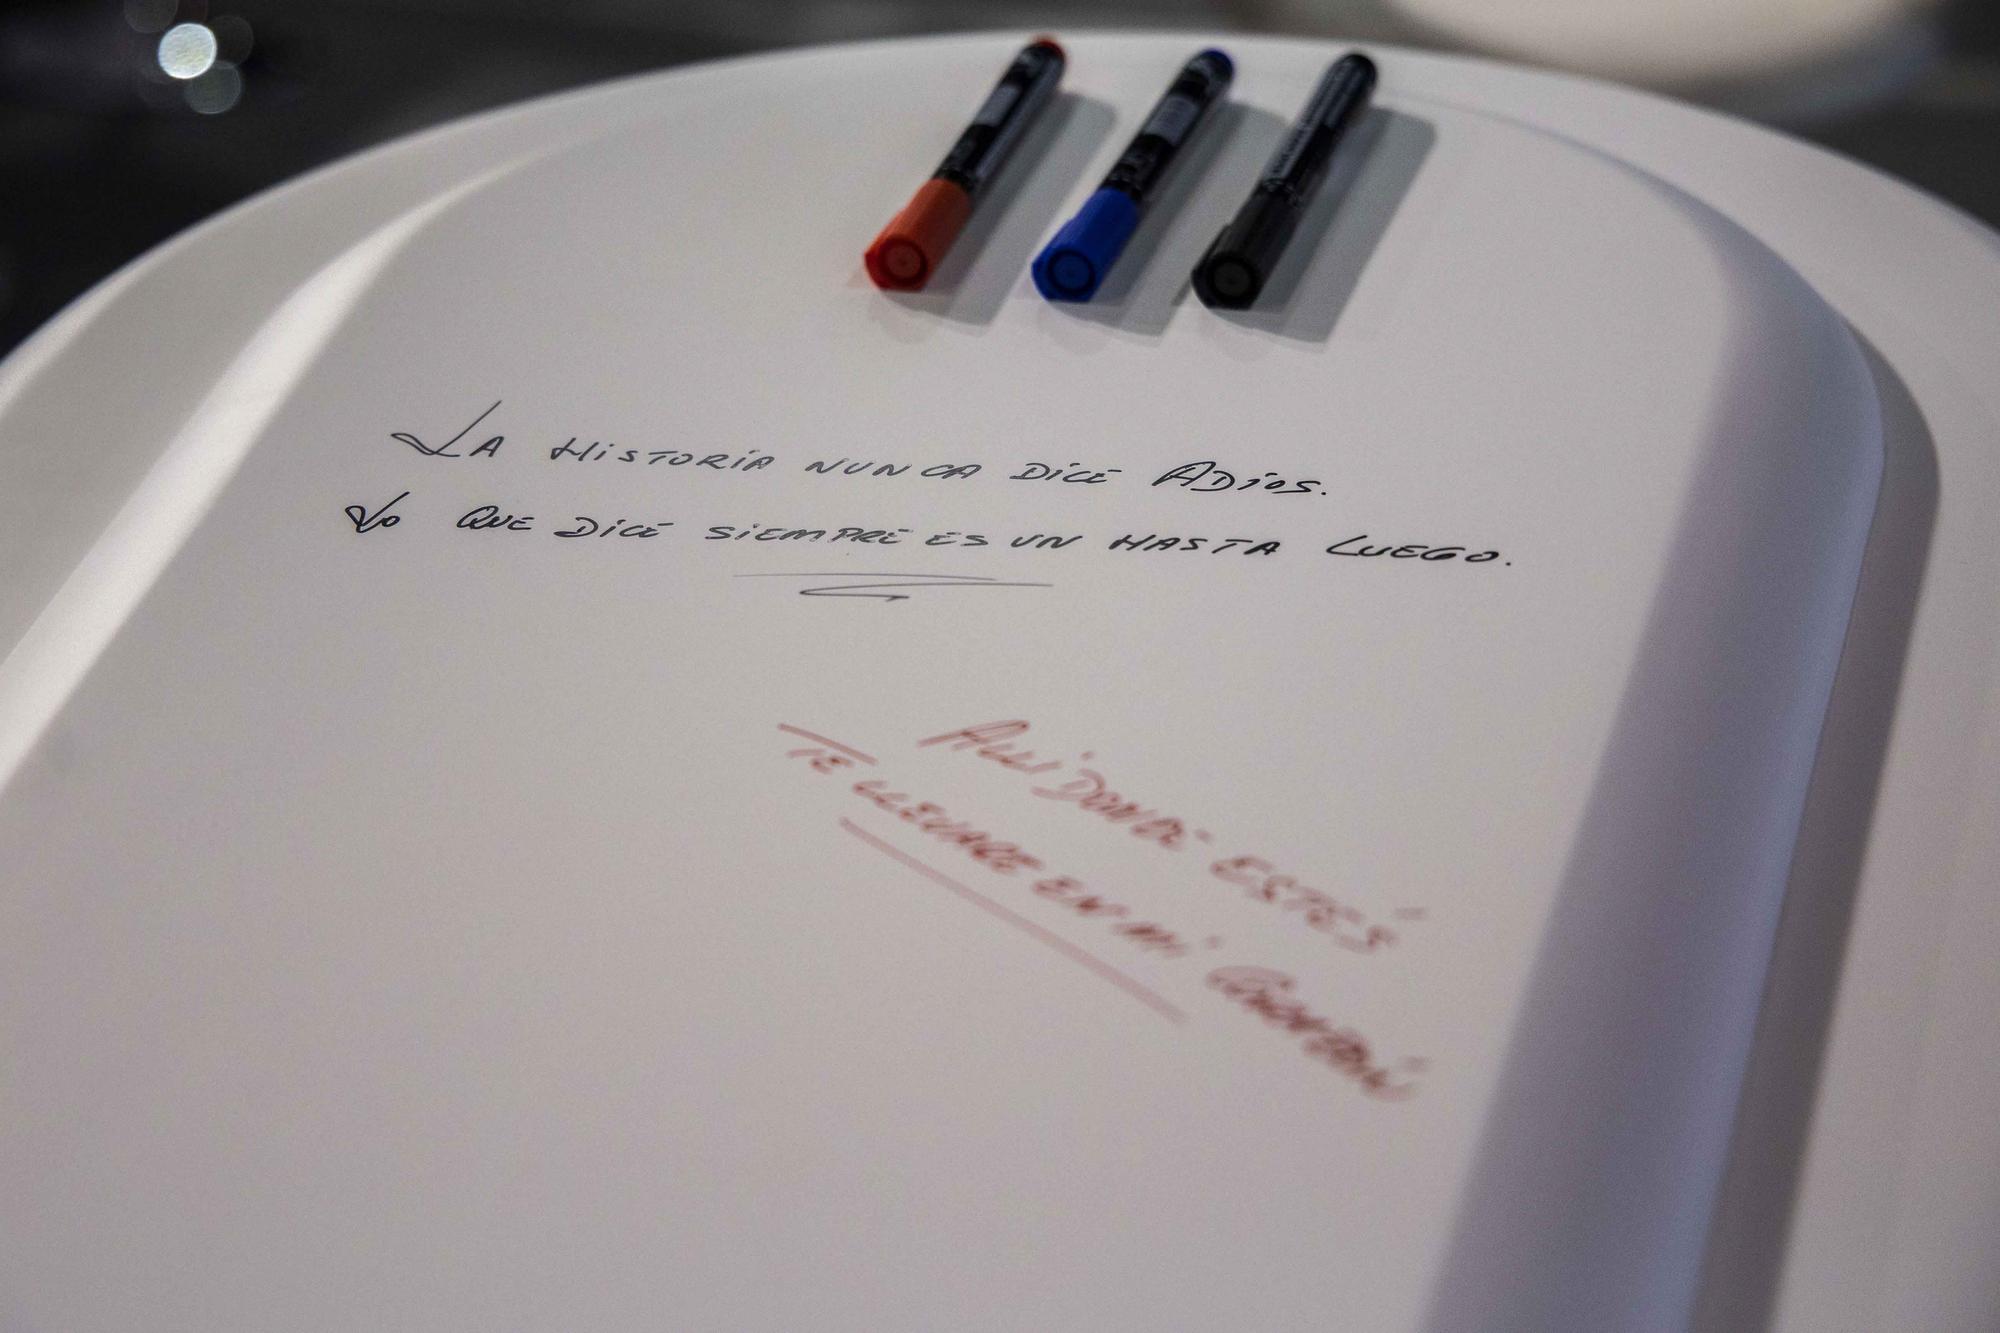 LA HISTORIA NUNCA DICE ADIOS.
LO QUE DICE SIEMPRE ES UN HASTA LUEGO.
ALLÍ DONDE ESTÉS
TE LLEVARE EN MI